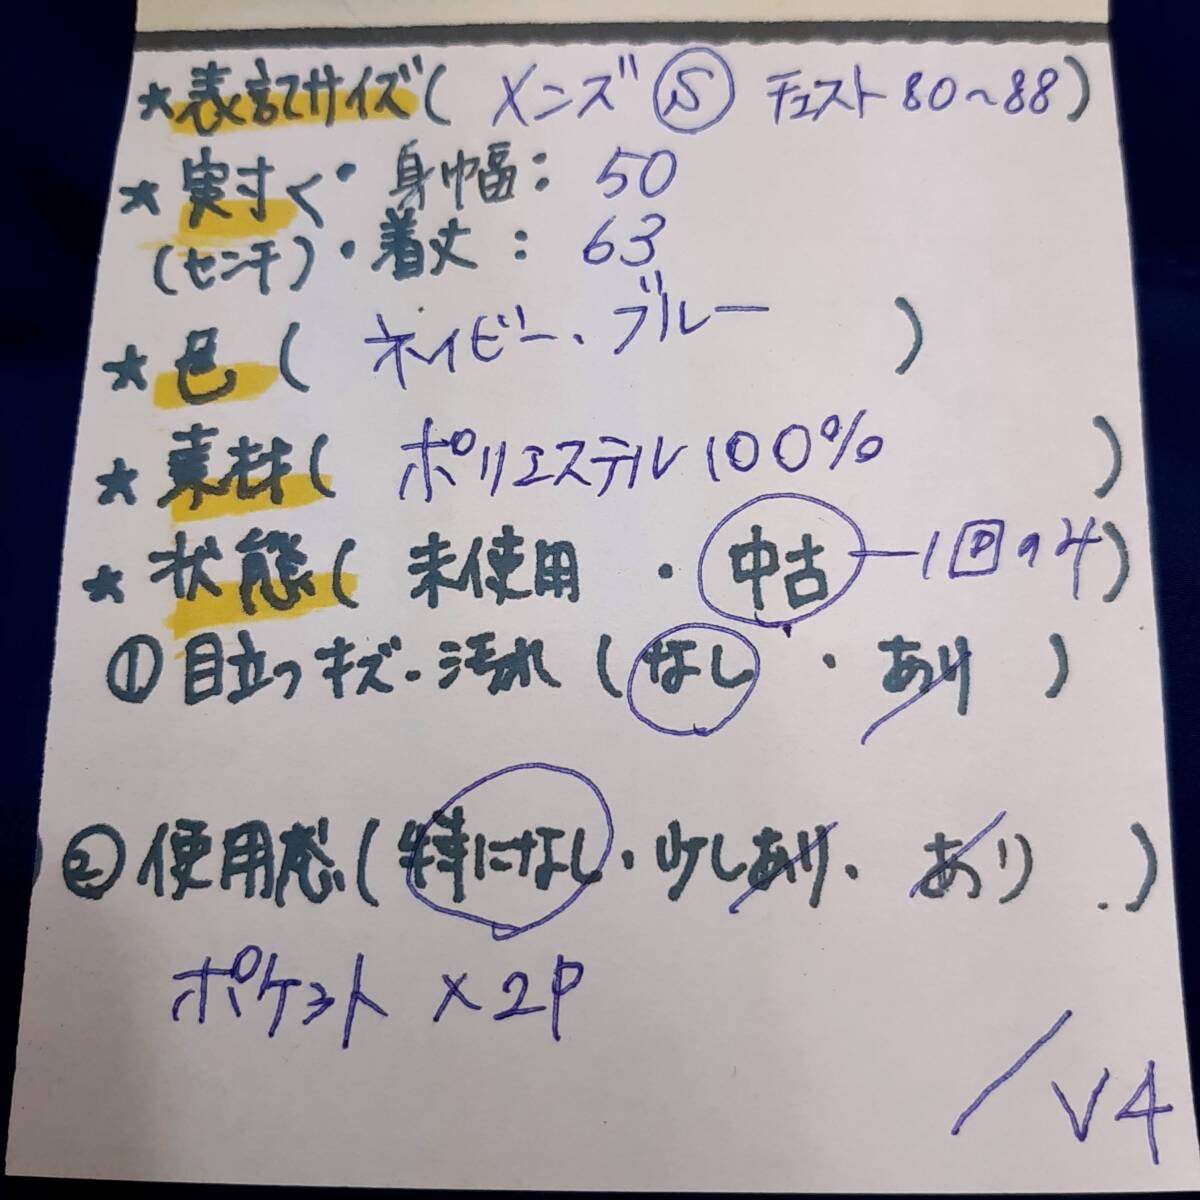 ★表記サイズ( メンズ Ⓢ チェスト80〜88)
★実寸く・身幅: 50
(センチ)・着丈: 63
★色( ネイビー、ブルー )
★素材( ポリエステル100% )
★状態( 未使用 ・ 中古 ー1回のみ)
①目立つキズ・汚れ(なし ・ あり )
②使用感(特になし・少しあり・ あり )
ポケット ×2P
/V4